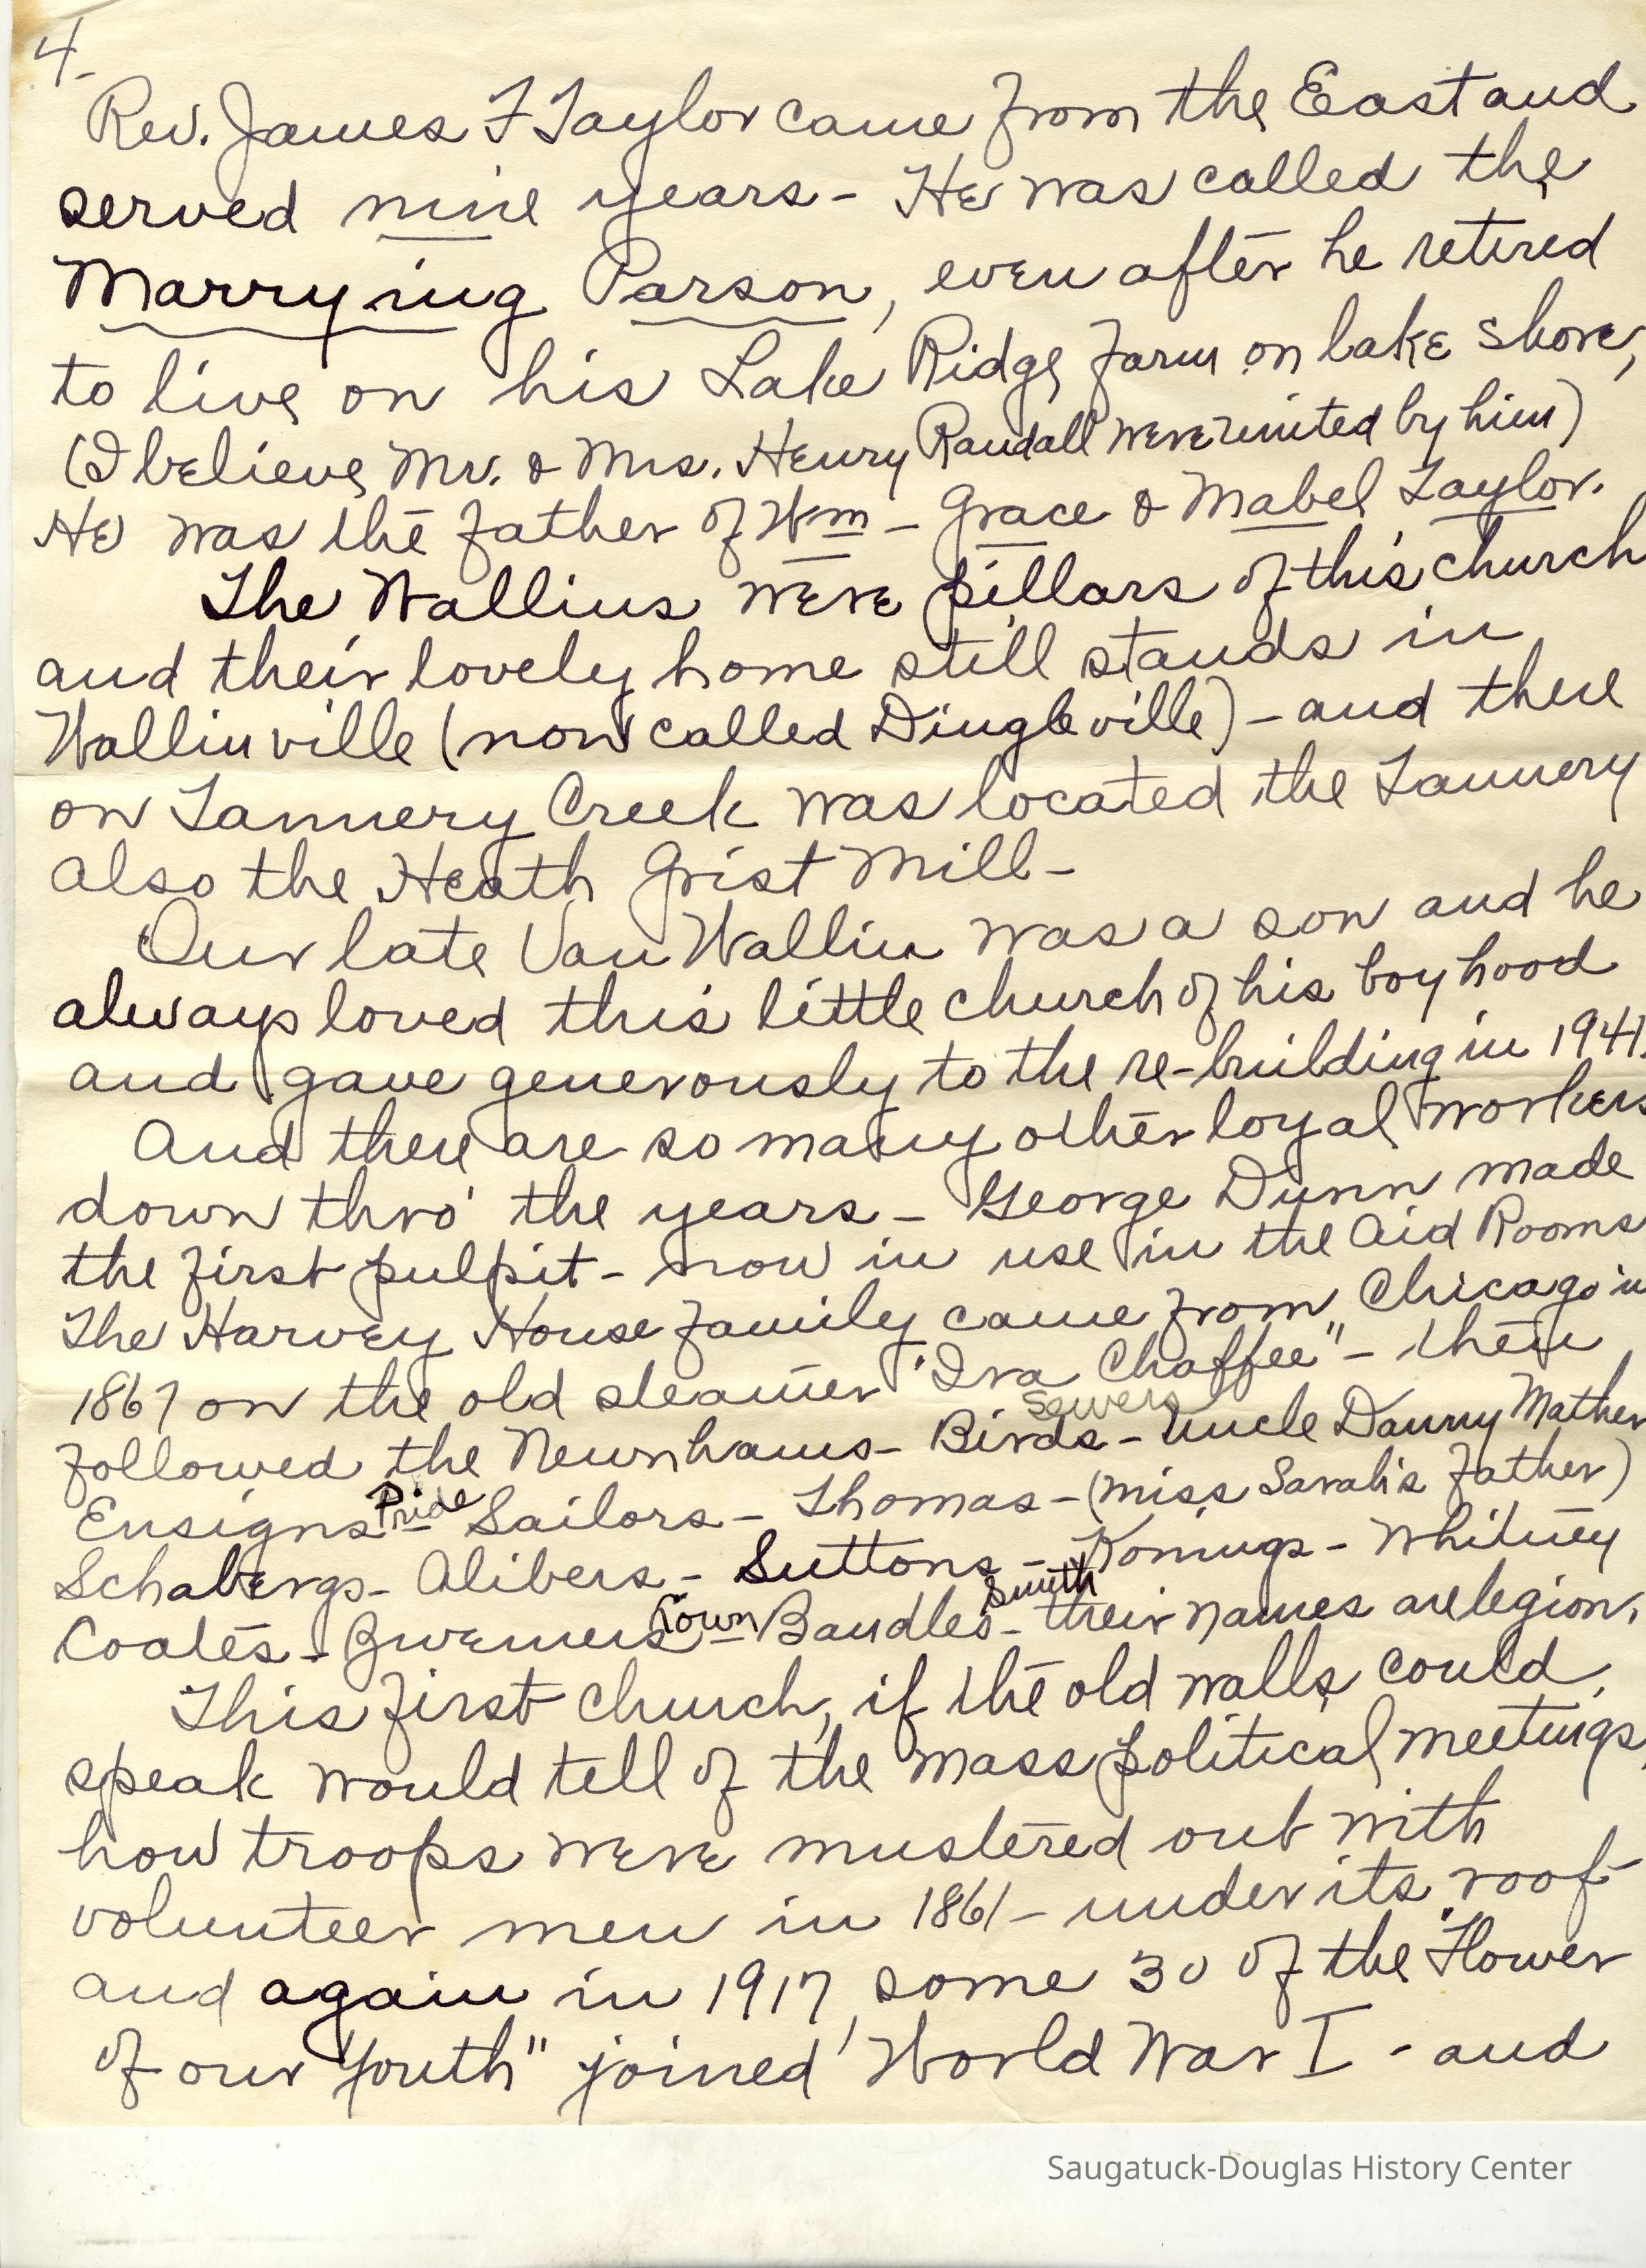 4-
Rev. James F Taylor came from the East and
served nine years - He was called the
Marrying Parson, even after he retired
to live on his Lake Ridge farm on lake shore,
(I believe Mr. & Mrs. Henry Randall were united by him)
He was the father of Wm - Grace & Mabel Taylor.
The Wallins were pillars of this church
and their lovely home still stands in
Wallinville (now called Dingleville) - and there
on Tannery Creek was located the Tannery
also the Heath Grist Mill -
Our late Van Wallin was a son and he
always loved this little church of his boyhood
and gave generously to the re-building in 1941.
And there are so many other loyal workers
down thro' the years - George Dunn made
the first pulpit - now in use in the Aid Rooms
The Harvey House family came from Chicago in
1867 on the old steamer "Ira Chaffee" - then
Sewers
followed the Newnhams - Birds - Uncle Danny Mather
Pride
Ensigns - Sailors - Thomas - (Miss Sarah's father)
Schabergs - Alibers - Suttons - Konings - Whitney
Town Smith
Coates - Bwemers - Bandles - their names are legion.
This first church, if the old walls could,
speak would tell of the mass political meetings,
how troops were mustered out with
volunteer men in 1861 - under its roof -
and again in 1917 some 30 of the "Flower
of our Youth" joined World War I - and
Saugatuck-Douglas History Center